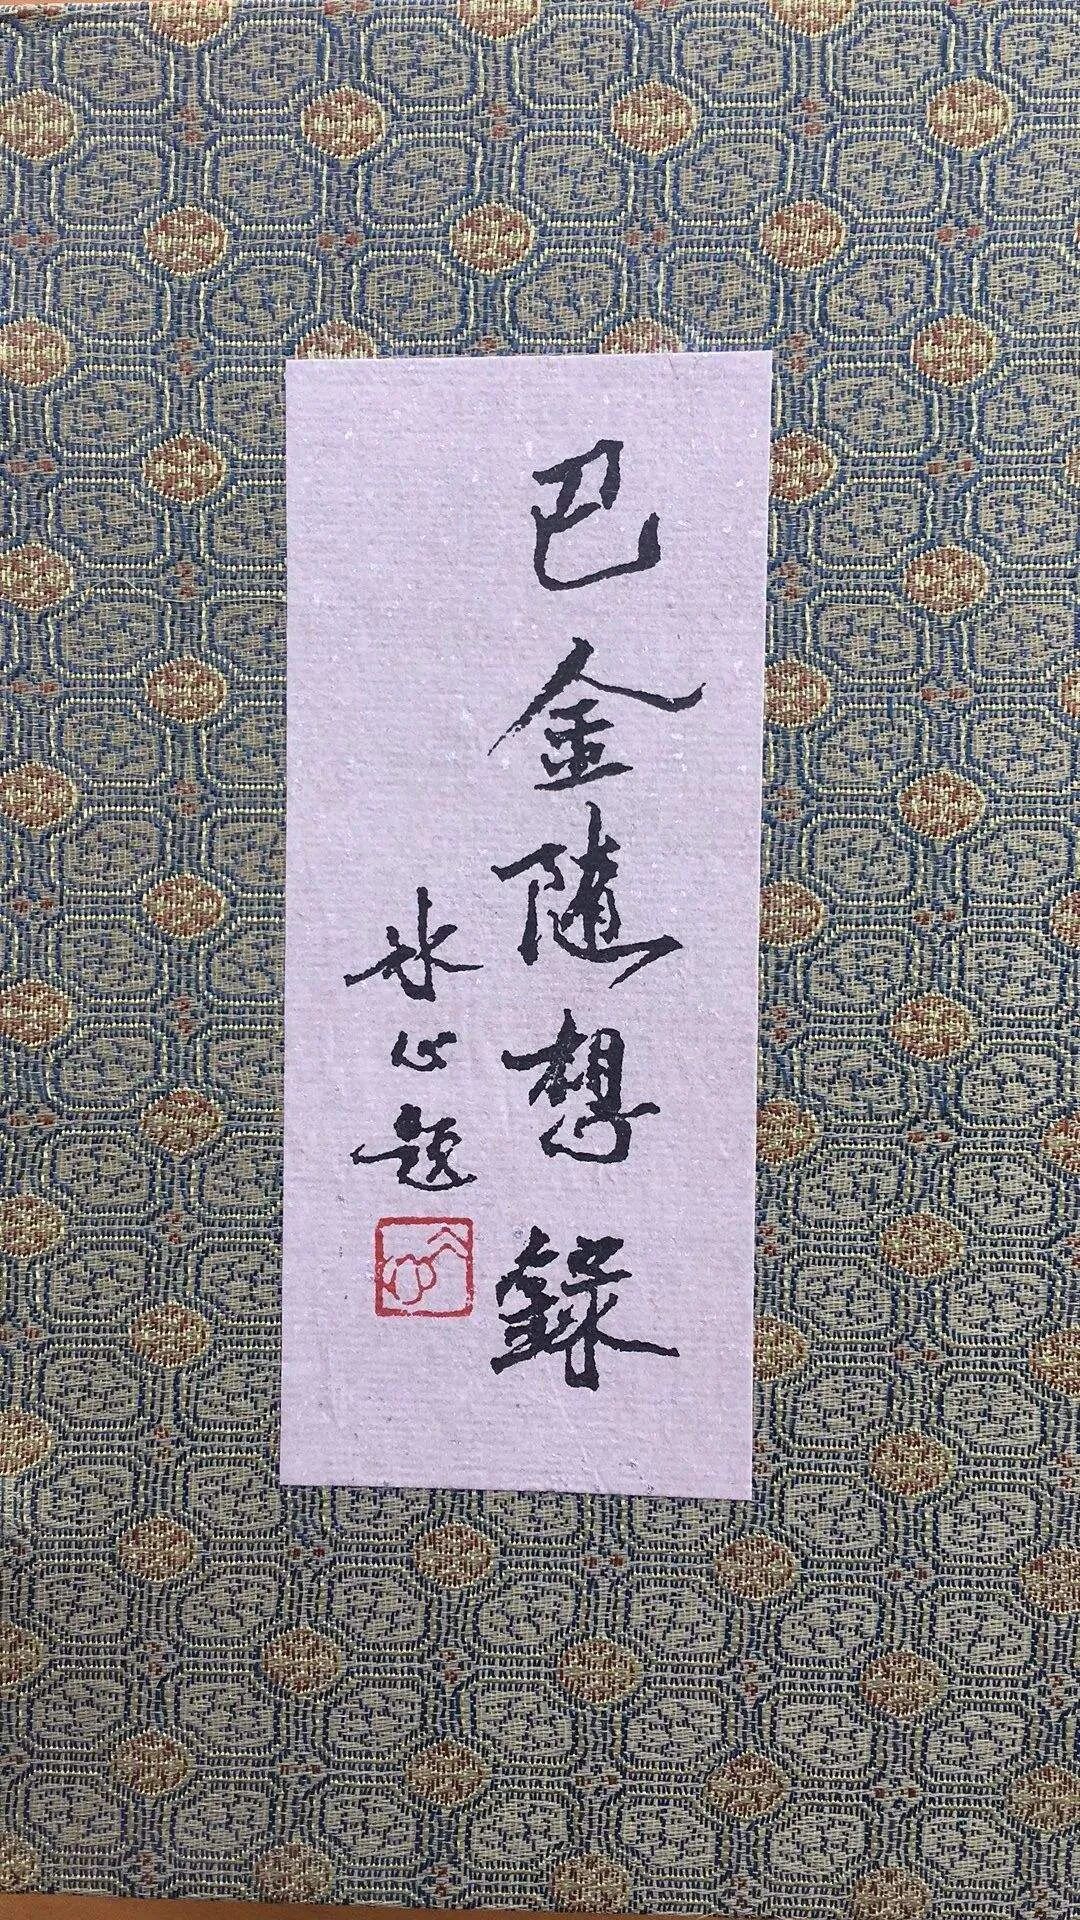 巴金隨想錄
冰心題